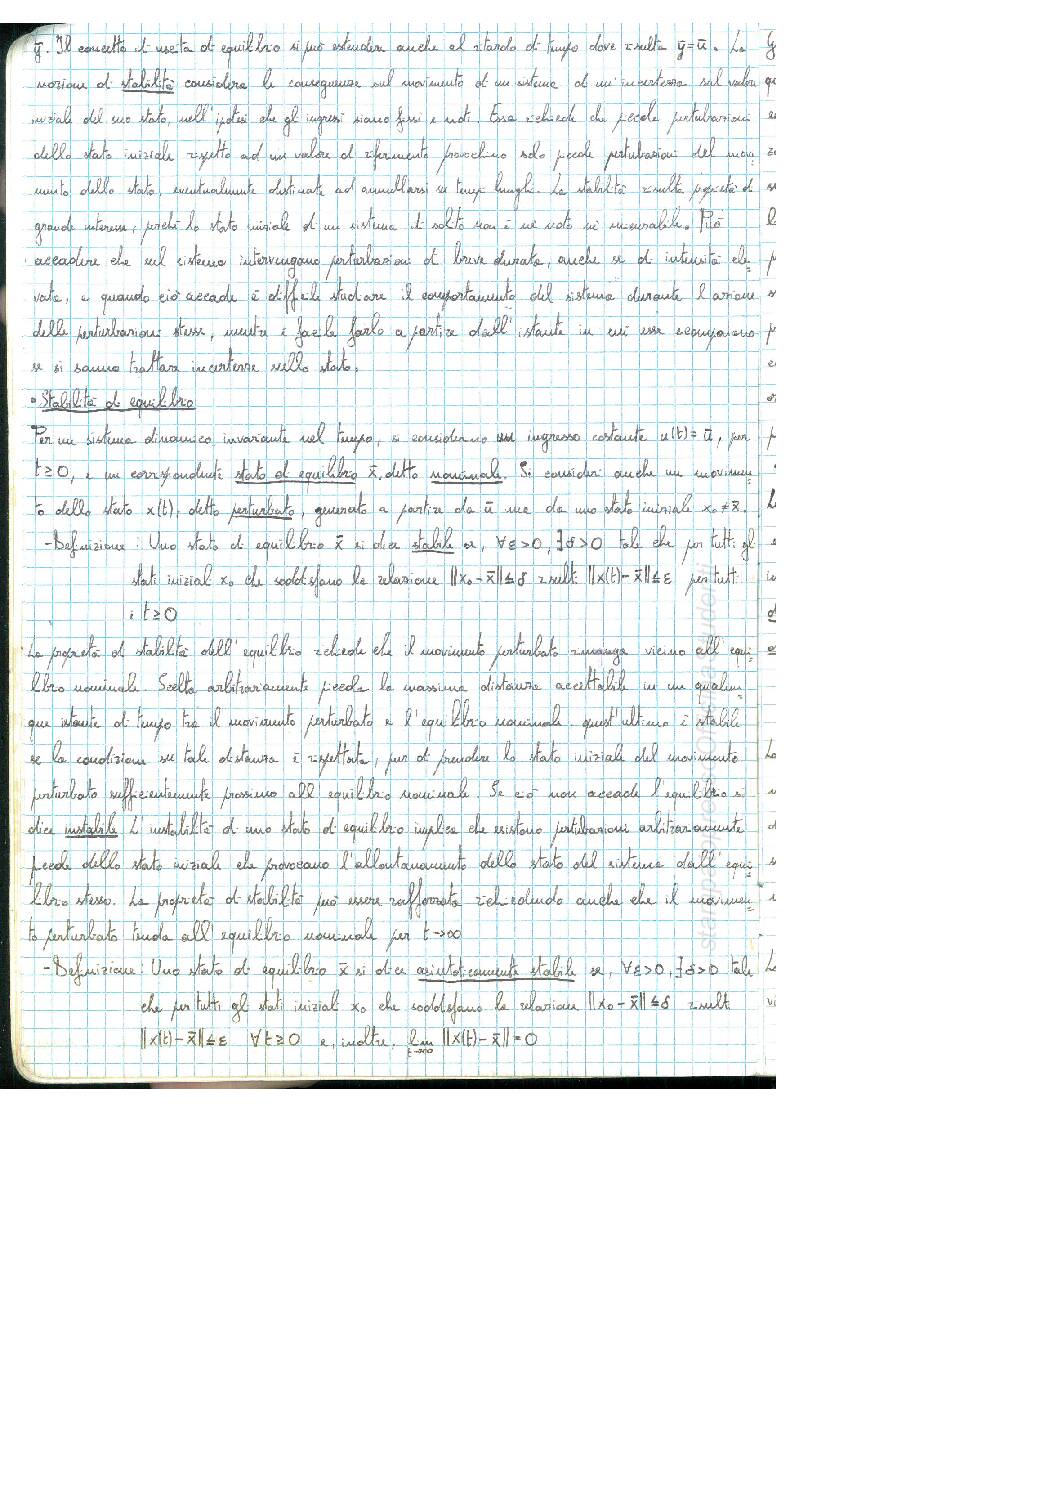 ȳ. Il concetto di uscita di equilibrio si può estendere anche al ritardo di tempo dove risulta ȳ=ū. La
nozione di stabilità considera le conseguenze sul movimento di un sistema di un'incertezza sul valore
iniziale del suo stato, nell'ipotesi che gli ingressi siano fissi e noti. Essa richiede che piccole perturbazioni
dello stato iniziale rispetto ad un valore di riferimento provochino solo piccole perturbazioni del movi=
mento dello stato, eventualmente destinate ad annullarsi su tempi lunghi. La stabilità risulta proprietà di
grande interesse, perché lo stato iniziale di un sistema di solito non è né noto né misurabile. Può
accadere che sul sistema intervengano perturbazioni di breve durata, anche se di intensità ele=
vata, e quando ciò accade è difficile studiare il comportamento del sistema durante l'azione
delle perturbazioni stesse, mentre è facile farlo a partire dall'istante in cui esse scompaiono
se si sanno trattare incertezze sullo stato.
• Stabilità di equilibrio
Per un sistema dinamico invariante nel tempo, si considerino un ingresso costante u(t)=ū, per
t≥0, e un corrispondente stato di equilibrio x̄, detto nominale. Si consideri anche un movimen=
to dello stato x(t), detto perturbato, generato a partire da ū ma da uno stato iniziale x₀≠x̄.
-Definizione: Uno stato di equilibrio x̄ si dice stabile se, ∀ε>0, ∃δ>0 tale che per tutti gli
stati iniziali x₀ che soddisfano la relazione ||x₀-x̄||≤δ risulti ||x(t)-x̄||≤ε per tutti
i t≥0
La proprietà di stabilità dell'equilibrio richiede che il movimento perturbato rimanga vicino all'equi=
librio nominale. Scelta arbitrariamente piccola la massima distanza accettabile in un qualun=
que istante di tempo tra il movimento perturbato e l'equilibrio nominale quest'ultimo è stabile
se la condizione su tale distanza è rispettata, pur di prendere lo stato iniziale del movimento
perturbato sufficientemente prossimo all'equilibrio nominale. Se ciò non accade l'equilibrio si
dice instabile L'instabilità di uno stato di equilibrio implica che esistono perturbazioni arbitrariamente
piccole dello stato iniziale che provocano l'allontanamento dello stato del sistema dall'equi=
librio stesso. La proprietà di stabilità può essere rafforzata richiedendo anche che il movimen=
to perturbato tenda all'equilibrio nominale per t→∞
-Definizione: Uno stato di equilibrio x̄ si dice asintoticamente stabile se, ∀ε>0, ∃δ>0 tale
che per tutti gli stati iniziali x₀ che soddisfano la relazione ||x₀-x̄||≤δ risulti
||x(t)-x̄||≤ε ∀t≥0 e, inoltre, lim t→∞ ||x(t)-x̄||=0